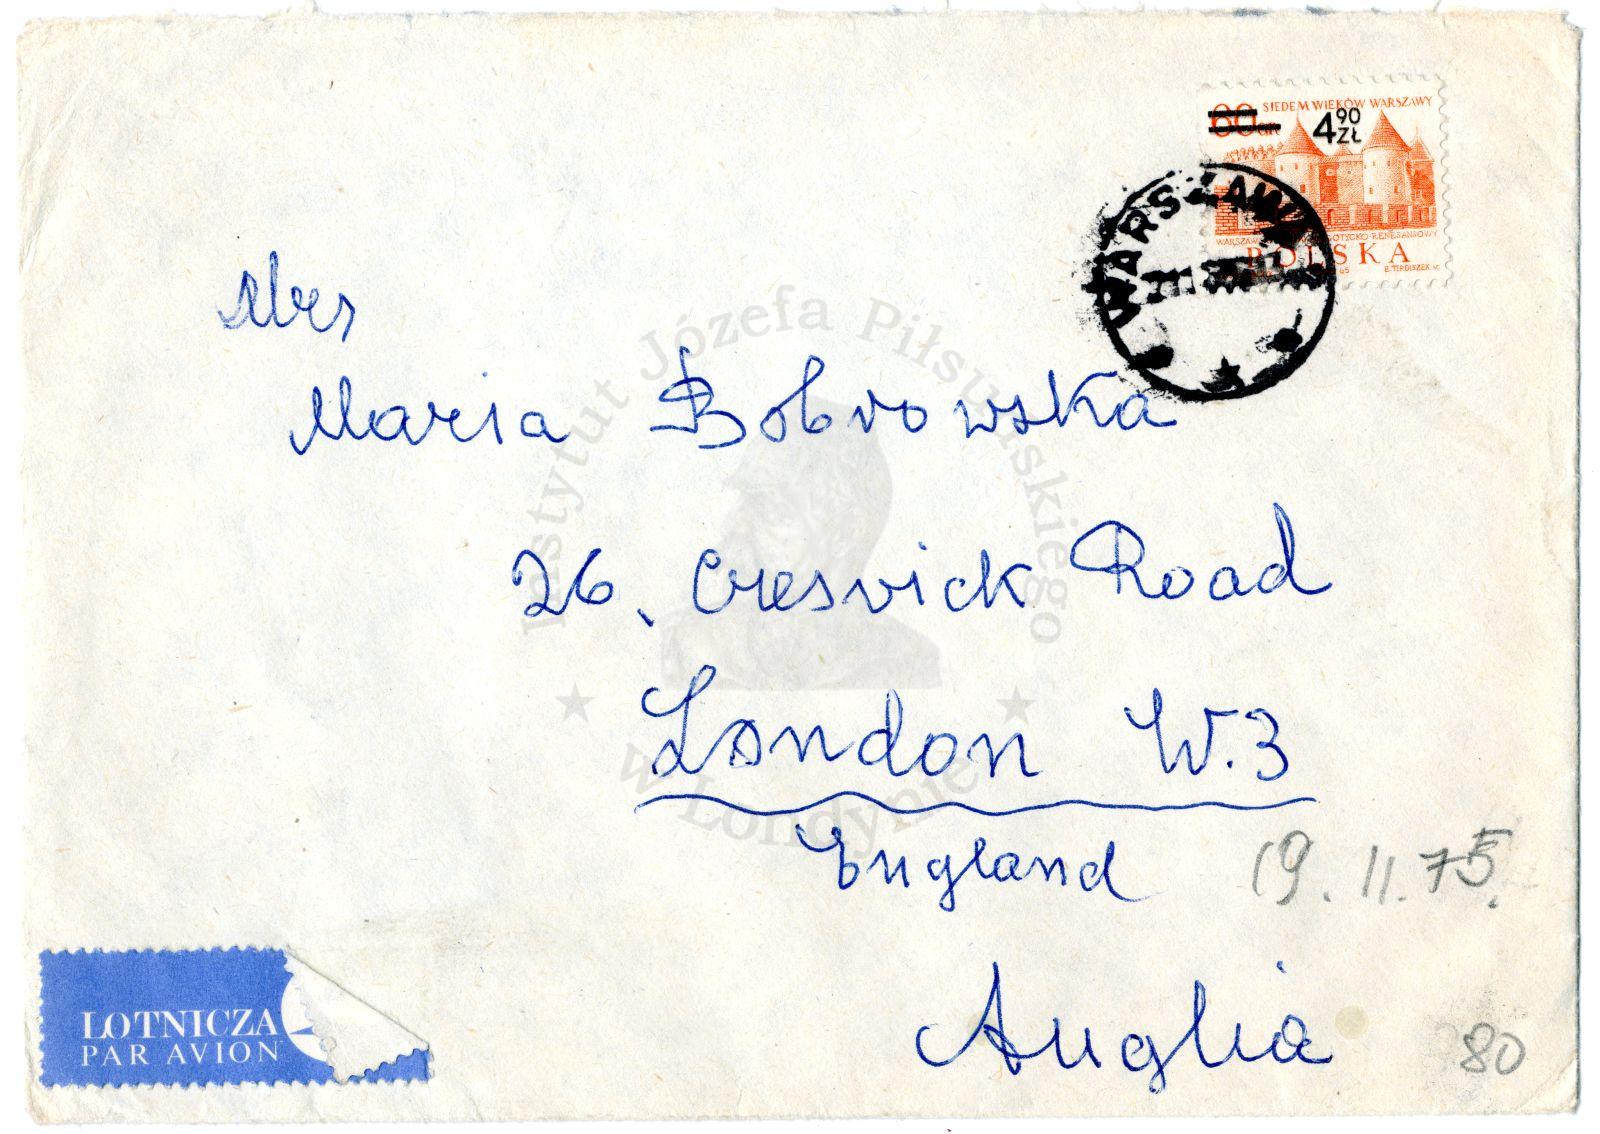 60 GR SIEDEM WIEKÓW WARSZAWY
4 90 ZŁ
WARSZAWA GOTYCKO-RENESANSOWY
POLSKA
65 E. TIRDISZEK sc.
WARSZAWA
Mrs
Maria Bobrowska
26. Creswick Road
London W.3
England
19.11.75.
Anglia
80
LOTNICZA
PAR AVION
Instytut Józefa Piłsudskiego
w Londynie